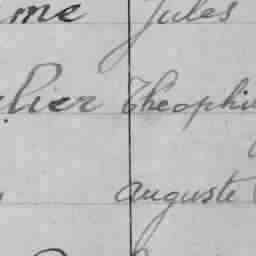 me Jules
lier Theophi
auguste